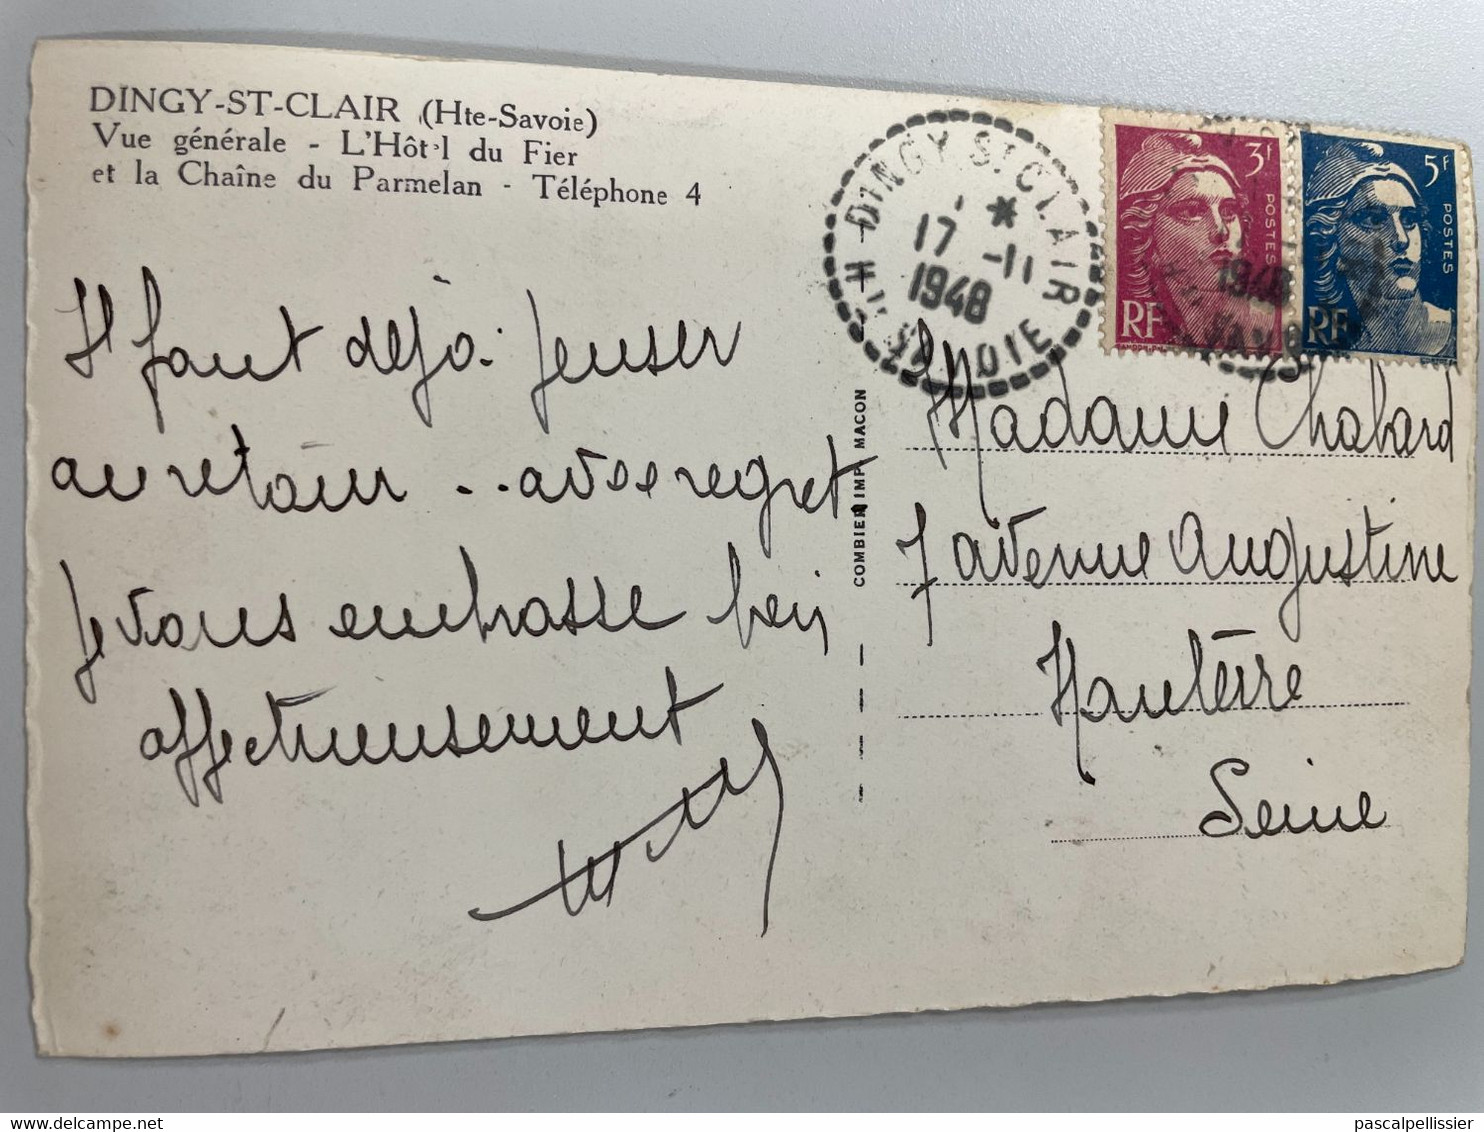 DINGY-ST-CLAIR (Hte-Savoie)
Vue générale - L'Hôt'l du Fier
et la Chaîne du Parmelan - Téléphone 4
Il faut déjà penser
au retour .. avec regret
Je vous embrasse bien
affectueusement
COMBIER IMP. MACON
DINGY ST CLAIR
17 -11
1948
Hte SAVOIE
3f
POSTES
RF
5f
POSTES
RF
1948
Madame Chabard
7 avenue Augustine
Nanterre
Seine
pascalpellissier